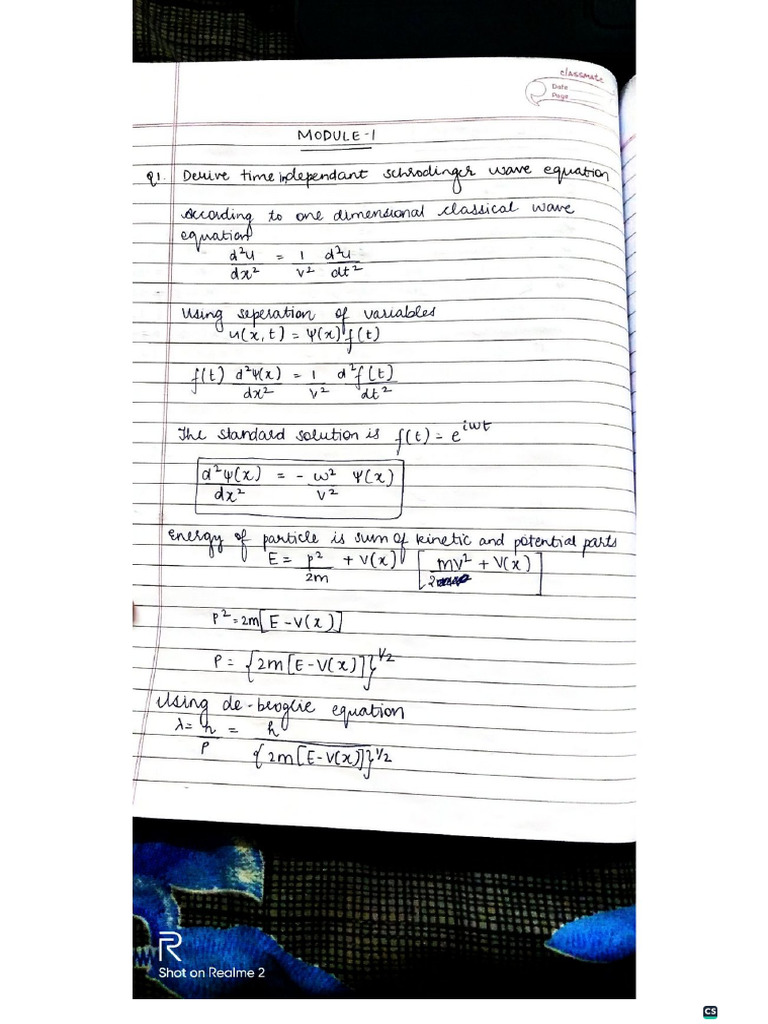 classmate
Date
Page
MODULE-1
Q1. Derive time independant schrodinger wave equation
According to one dimensional classical wave
equation
d²u/dx² = 1/v² d²u/dt²
Using seperation of variables
u(x,t) = Ψ(x) f(t)
f(t) d²Ψ(x)/dx² = 1/v² d²f(t)/dt²
The standard solution is f(t) = e^iwt
d²Ψ(x)/dx² = - ω²/v² Ψ(x)
Energy of particle is sum of kinetic and potential parts
E = p²/2m + V(x) [mv²/2 + V(x)]
p² = 2m[E - V(x)]
P = {2m[E - V(x)]}^1/2
Using de-broglie equation
λ = h/P = h/{2m[E - V(x)]}^1/2
R
Shot on Realme 2
CS